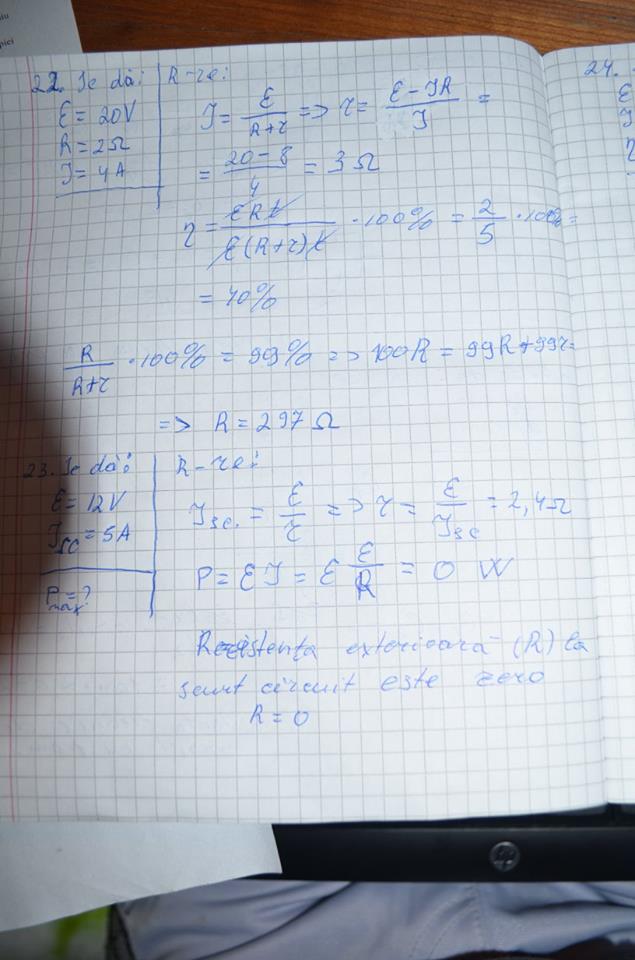 22. Se dă:
ε = 20V
R = 2Ω
I = 4A
R-re:
I = ε/(R+r) => r = (ε - IR)/I =
= (20 - 8)/4 = 3 Ω
η = εRt/(ε(R+r)t) · 100% = 2/5 · 100% =
= 40%
R/(R+r) · 100% = 99% => 100R = 99R + 99r =
=> R = 297 Ω
23. Se dă:
ε = 12V
Isc = 5A
Pmax = ?
R-re:
Isc. = ε/r => r = ε/Isc = 2,4Ω
P = εI = ε ε/R = 0 W
Rezistența exterioară (R) la
scurt circuit este zero
R = 0
24.
ε
I
η
hp